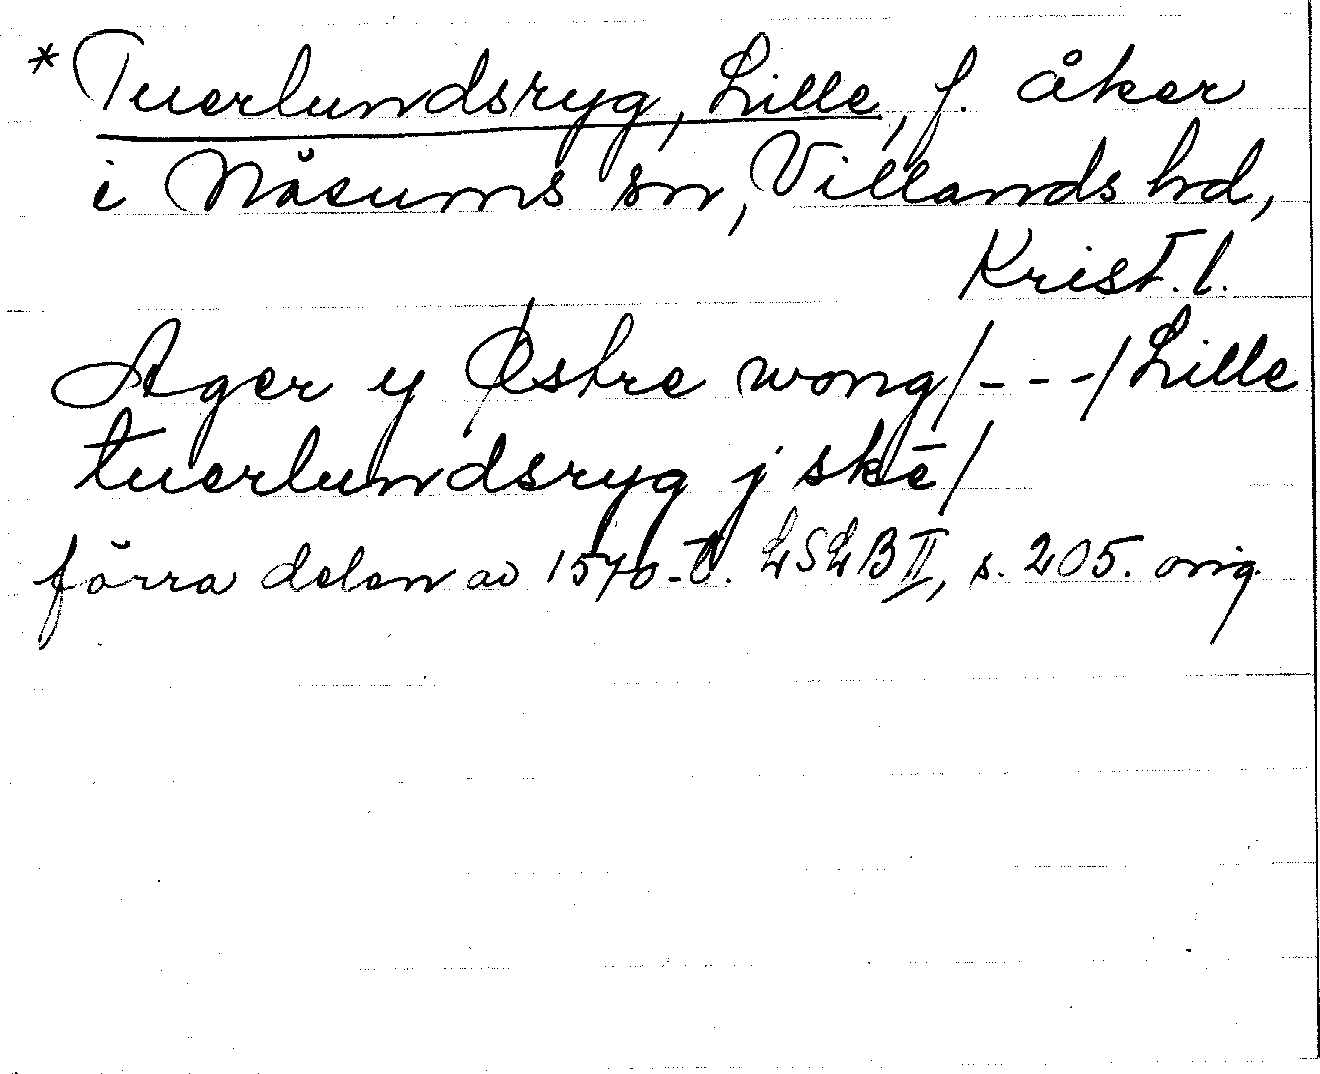 *Tuerlundsryg, Lille, f. åker
i Näsums sn, Villands hd,
Krist. l.
Ager y Østre wong/---/Lille
tuerlundsryg j skē/
förra delen av 1570-t. LSLB II, s. 205. orig.